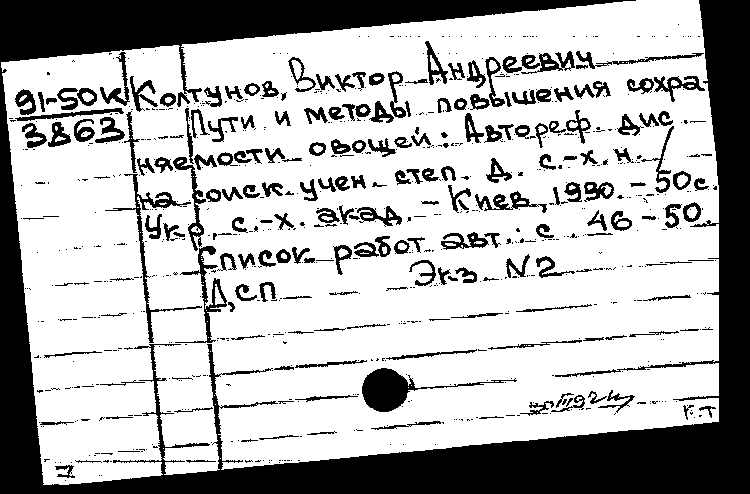 91-50К Колтунов, Виктор Андреевич
3863 Пути и методы повышения сохра-
няемости овощей: Автореф. дис.
на соиск. учен. степ. д. с.-х. н. /
Укр. с.-х. акад. - Киев, 1990. - 50с.
Список работ авт.: с. 46-50.
ДСП Экз. N2
К.Т